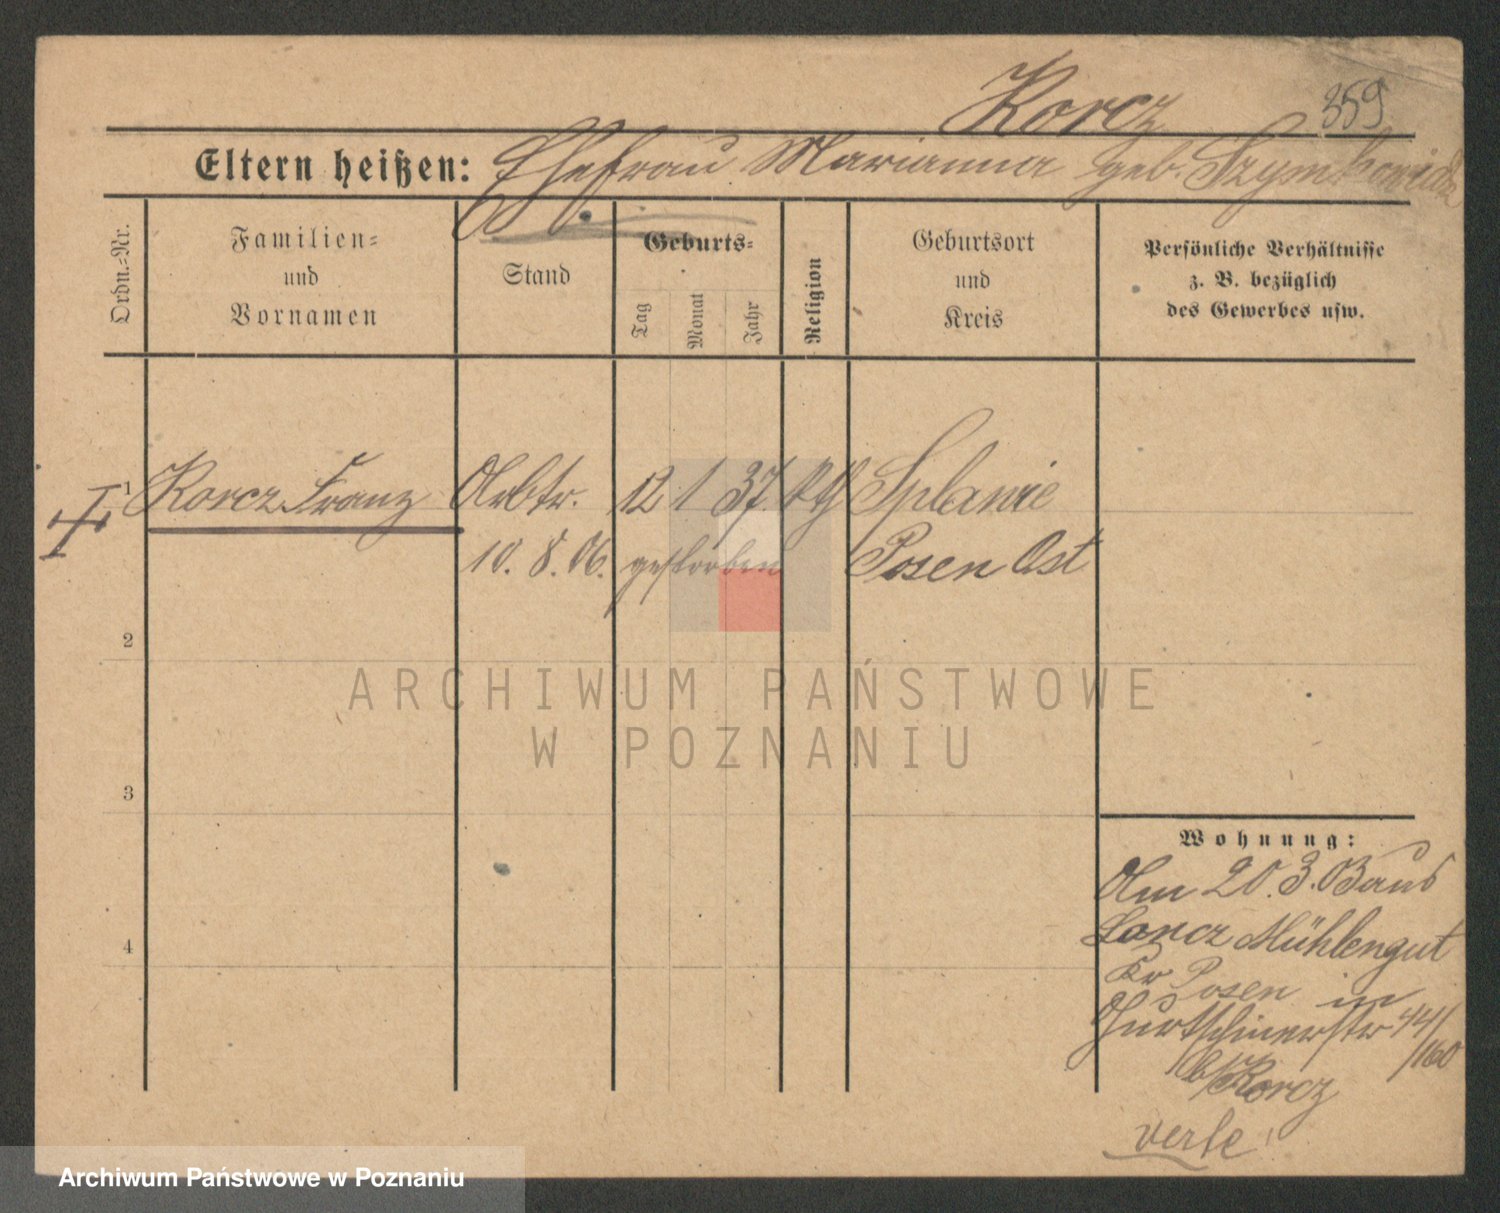 Korcz 359
Eltern heißen: Ehefrau Marianna geb. Szymkowiak
Ordn.-Nr.
Familien-
und
Vornamen
Stand
Geburts-
Tag
Monat
Jahr
Religion
Geburtsort
und
Kreis
Persönliche Verhältnisse
z. B. bezüglich
des Gewerbes usw.
1 Korcz Franz Arbtr. 12 1 37. kth Splawie
10. 8. 06. gestorben Posen Ost
2
3
4
Wohnung:
Am 20. 3. 03 aus
Mühlengut
Kr Posen in
Gurtschinerstr 44/
/160
b/Korcz
ARCHIWUM PAŃSTWOWE
W POZNANIU
Archiwum Państwowe w Poznaniu